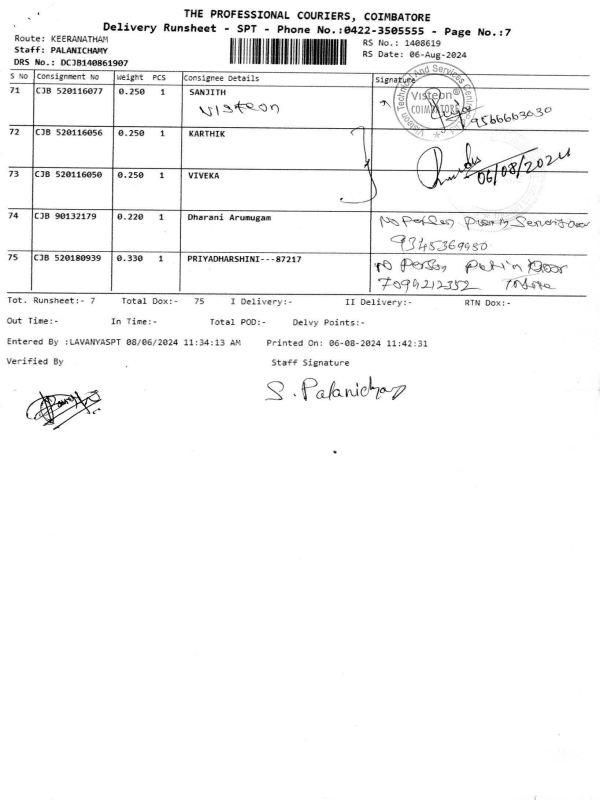 THE PROFESSIONAL COURIERS, COIMBATORE
Delivery Runsheet - SPT - Phone No.:0422-3505555 - Page No.:7
Route: KEERANATHAM
Staff: PALANICHAMY
DRS No.: DCJB140861907
RS No.: 1408619
RS Date: 06-Aug-2024
S No Consignment No Weight PCS Consignee Details Signature
71 CJB 520116077 0.250 1 SANJITH
visteon
Visteon Technical And Services Centre
Visteon®
COIMBATORE
9566663030
72 CJB 520116056 0.250 1 KARTHIK
06/08/2024
73 CJB 520116050 0.250 1 VIVEKA
74 CJB 90132179 0.220 1 Dharani Arumugam
No Person
9345369950
75 CJB 520180939 0.330 1 PRIYADHARSHINI---87217
no Person Door
7094212352
Tot. Runsheet:- 7 Total Dox:- 75 I Delivery:- II Delivery:- RTN Dox:-
Out Time:- In Time:- Total POD:- Delvy Points:-
Entered By :LAVANYASPT 08/06/2024 11:34:13 AM Printed On: 06-08-2024 11:42:31
Verified By Staff Signature
S. Palanichay